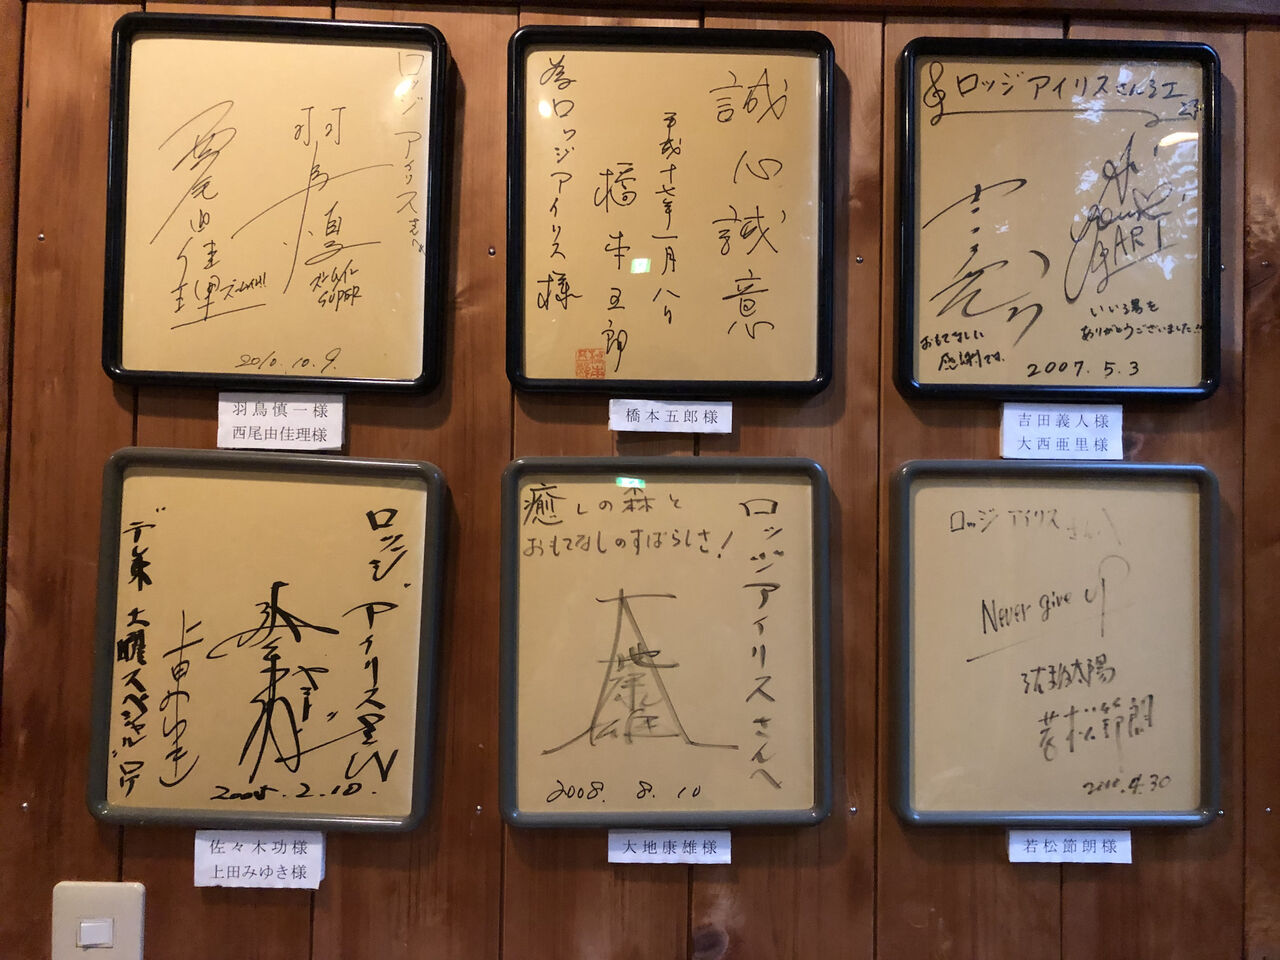 ロッジ アイリスさんへ
羽鳥慎一
ズームイン
SUPER
西尾由佳理
ズームイン!!
2010.10.9
羽鳥慎一様
西尾由佳理様
誠心誠意
平成十七年一月八日
橋本五郎
為ロッジアイリス様
橋本五郎様
ロッジアイリスさん江
ARI
いい湯を
ありがとうございました!!
おもてなしに
感謝です。
2007.5.3
吉田義人様
大西亜里様
ロッジ
アイリスさん江
上田みゆき
テレ東 土曜スペシャル ロケ
佐々木功様
上田みゆき様
癒しの森と
おもてなしのすばらしさ!
ロッジアイリスさんへ
大地康雄
2008.8.10
大地康雄様
ロッジ アイリス さんへ
Never give up
沈まぬ太陽
若松節朗
4.30
若松節朗様